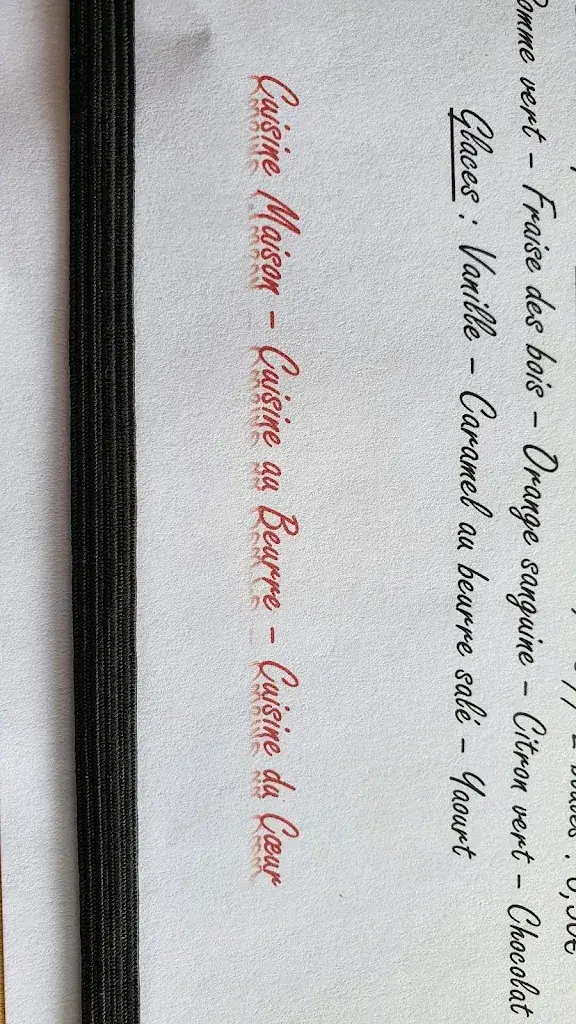 2 boules :
Pomme vert - Fraise des bois - Orange sanguine - Citron vert - Chocolat
Glaces : Vanille - Caramel au beurre salé - Yaourt
Cuisine Maison - Cuisine au Beurre - Cuisine du Cœur